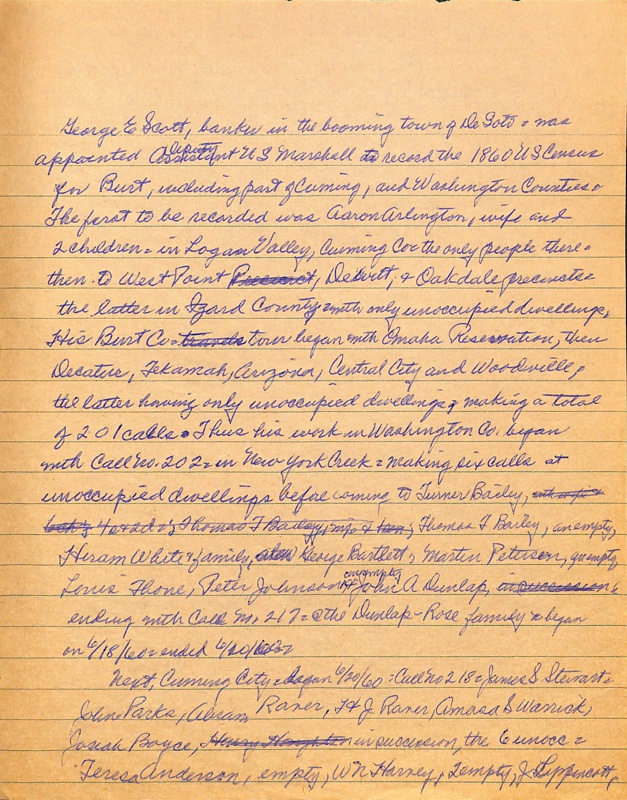 George E Scott, banker in the booming town of DeSoto = was
appointed Assistant Deputy US Marshall to record the 1860 US Census
for Burt, including part of Cuming, and Washington Counties.
The first to be recorded was Aaron Arlington, wife and
2 children = in Logan Valley, Cuming Co = the only people there =
then to West Point Precinct, Dewitt, & Oakdale precincts =
the latter in Izard County = with only unoccupied dwellings,
His Burt Co = tour began with Omaha Reservation, then
Decatur, Tekamah, Arizona, Central City and Woodville,
the latter having only unoccupied dwellings, making a total
of 201 calls. Thus his work in Washington Co. began
with Call No. 202 = in New York Creek = making six calls at
unoccupied dwellings before coming to Turner Bailey,
Thomas F Bailey, an empty,
Hiram White & family, George Bartlett, Martin Petersen, an empty,
Louis Thone, Peter Johnson, an empty & John A Dunlap, in succession
ending with Call No. 217 = @ the Dunlap-Rose family & began
on 6/18/60 = ended 6/20/60 =
Next, Cuming City = began 6/20/60 = Call No 218 = James S Stewart =
John Parks, Abram Raner, F & J Raner, Amasa S Warrick,
Josiah Boyce, Henry Houghton in succession, the 6 unocc =
Teresa Anderson, empty, W N Harvey, 2 empty, J Lippencott,